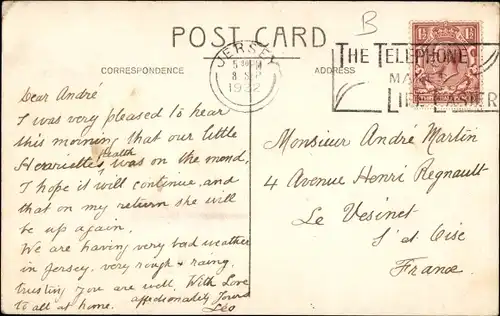 B
POST CARD
CORRESPONDENCE
ADDRESS
JERSEY
1932
THE TELEPHONE
MAKES
LIFE EASIER
Dear André
I was very pleased to hear
this morning that our little
Henriette's Health was on the mend,
I hope it will continue, and
that on my return she will
be up again.
We are having very bad weather
in Jersey. very rough & raing.
trusting you are well. With Love
to all at home. affectionately Yours
Léo
Monsieur André Martin
4 Avenue Henri Regnault
Le Vesinet
S' et Oise
France